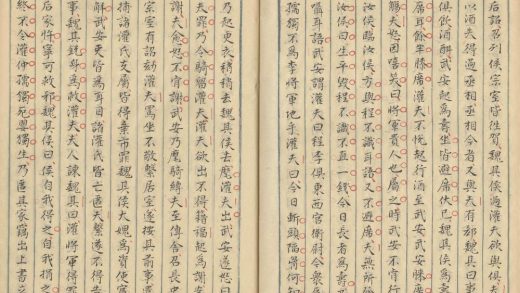 后詔召列侯宗室皆往賀魏其侯過灌夫欲與俱夫
過丞相丞相今者又與夫有郄魏其曰事
俱飲酒酣武安起為壽坐皆避席伏已魏其侯為壽
席耳餘半膝席灌夫不悅起行酒至武安武安膝席
觴夫怒因嘻笑曰將軍貴人也屬之時武安不肯行
汝侯臨汝侯方與程不識耳語又不避席夫無所
汝侯曰生平毀程不識不直一錢今日長者為壽
囁耳語武安謂灌夫曰程李俱東西宮衛尉今衆
孺獨不為李將軍地乎灌夫曰今日斬頭陷胷何知
乃起更衣稍稍去魏其侯去麾灌夫出武安遂怒曰
夫罪乃令騎留灌夫灌夫欲出不得籍福起為謝
謝夫愈怒不肯謝武安乃麾騎縛夫至傳舍召長史
宗室有詔劾灌夫罵坐不敬繫居室遂按其前事
捕諸灌氏支屬皆得棄市罪魏其侯大媿為資使賓
解武安吏皆為耳目諸灌氏皆亡匿夫繫遂不得告
事魏其銳身為救灌夫夫人諫魏其曰灌將軍得罪
后家忤寧可救邪魏其侯曰侯自我得之自我捐之
終不令灌仲孺獨死嬰獨生乃匿其家竊出上書